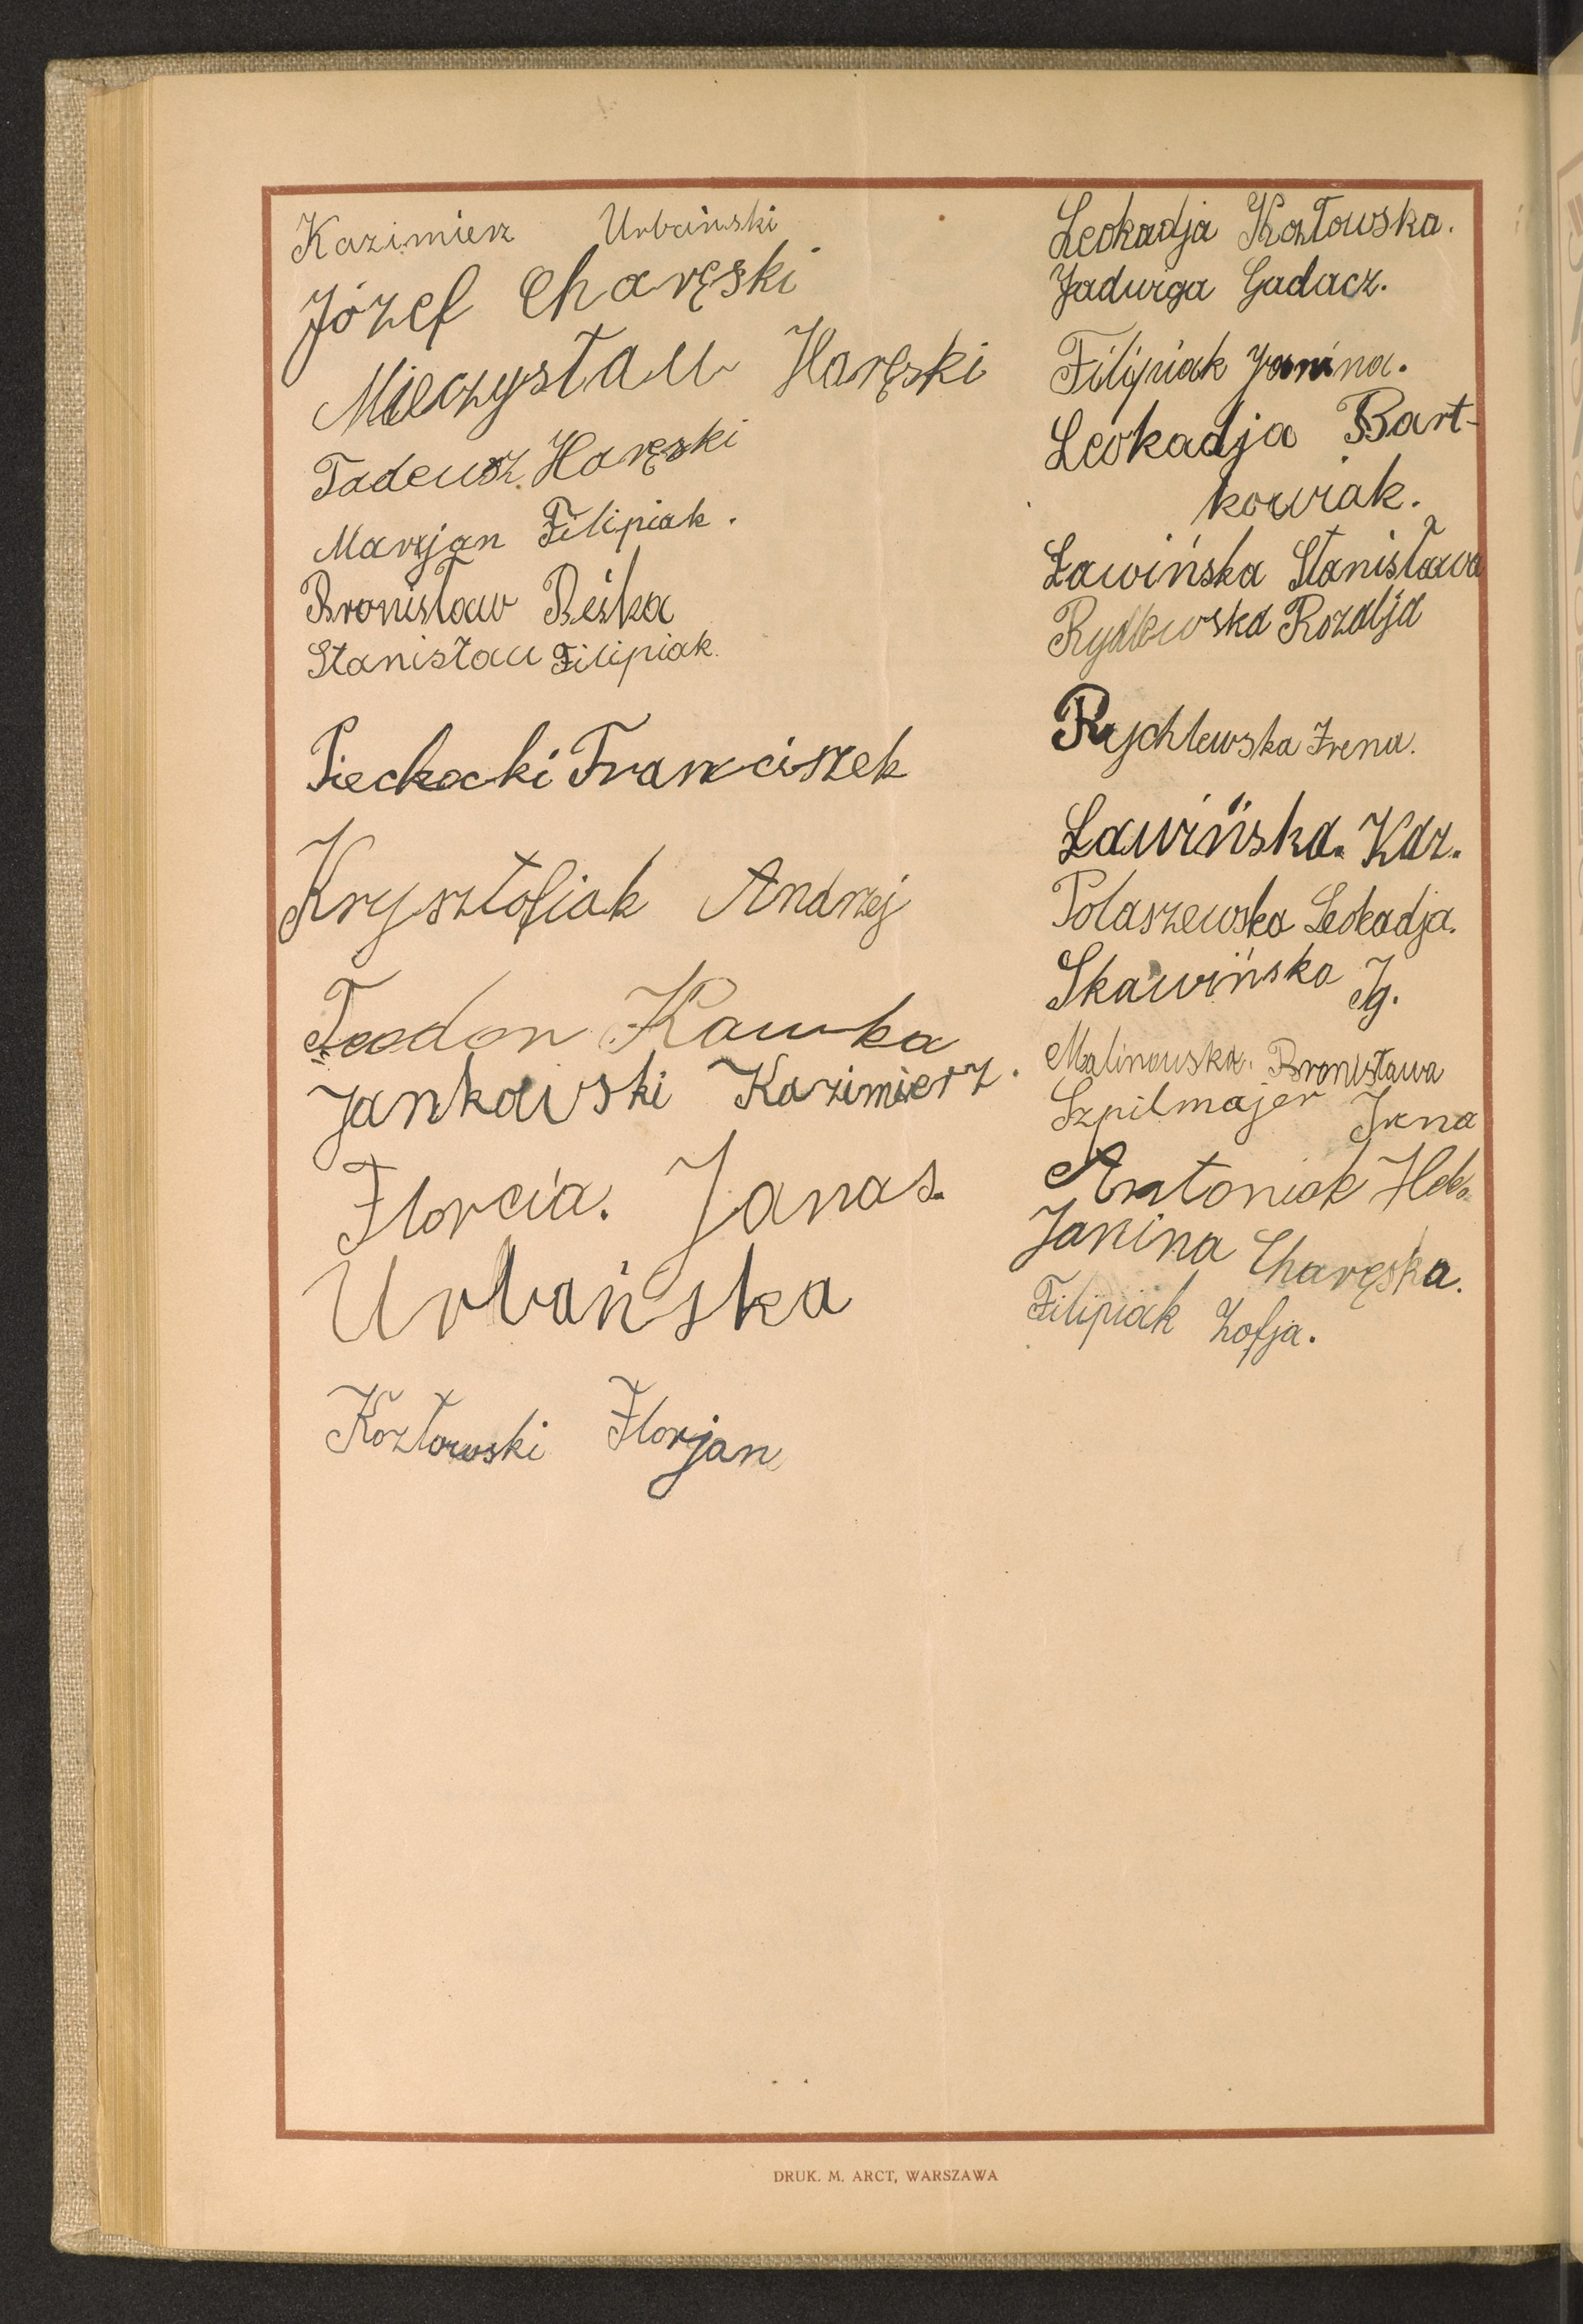 Kazimierz Urbański
Józef Charęski
Mieczysław Haręski
Tadeusz Haręski
Marjan Filipiak.
Bronisław Beśka
Stanisław Filipiak.
Piechocki Franciszek
Krysztofiak Andrzej
Teodor Kawka
Jankowski Kazimierz.
Florcia. Janas.
Urbańska
Kozłowski Florjan
Leokadja Kozłowska.
Jadwiga Gadacz.
Filipiak Janina.
Leokadja Bart-
kowiak.
Ławińska Stanisława
Rydlewska Rozalja
Rychlewska Irena.
Ławińska. Kaz.
Polaszewska Leokadja.
Skawińska Ig.
Malinowska. Bronisława
Szpilmajer Irna
Antoniak Hel.
Janina Charęska.
Filipiak Zofja.
DRUK. M. ARCT, WARSZAWA